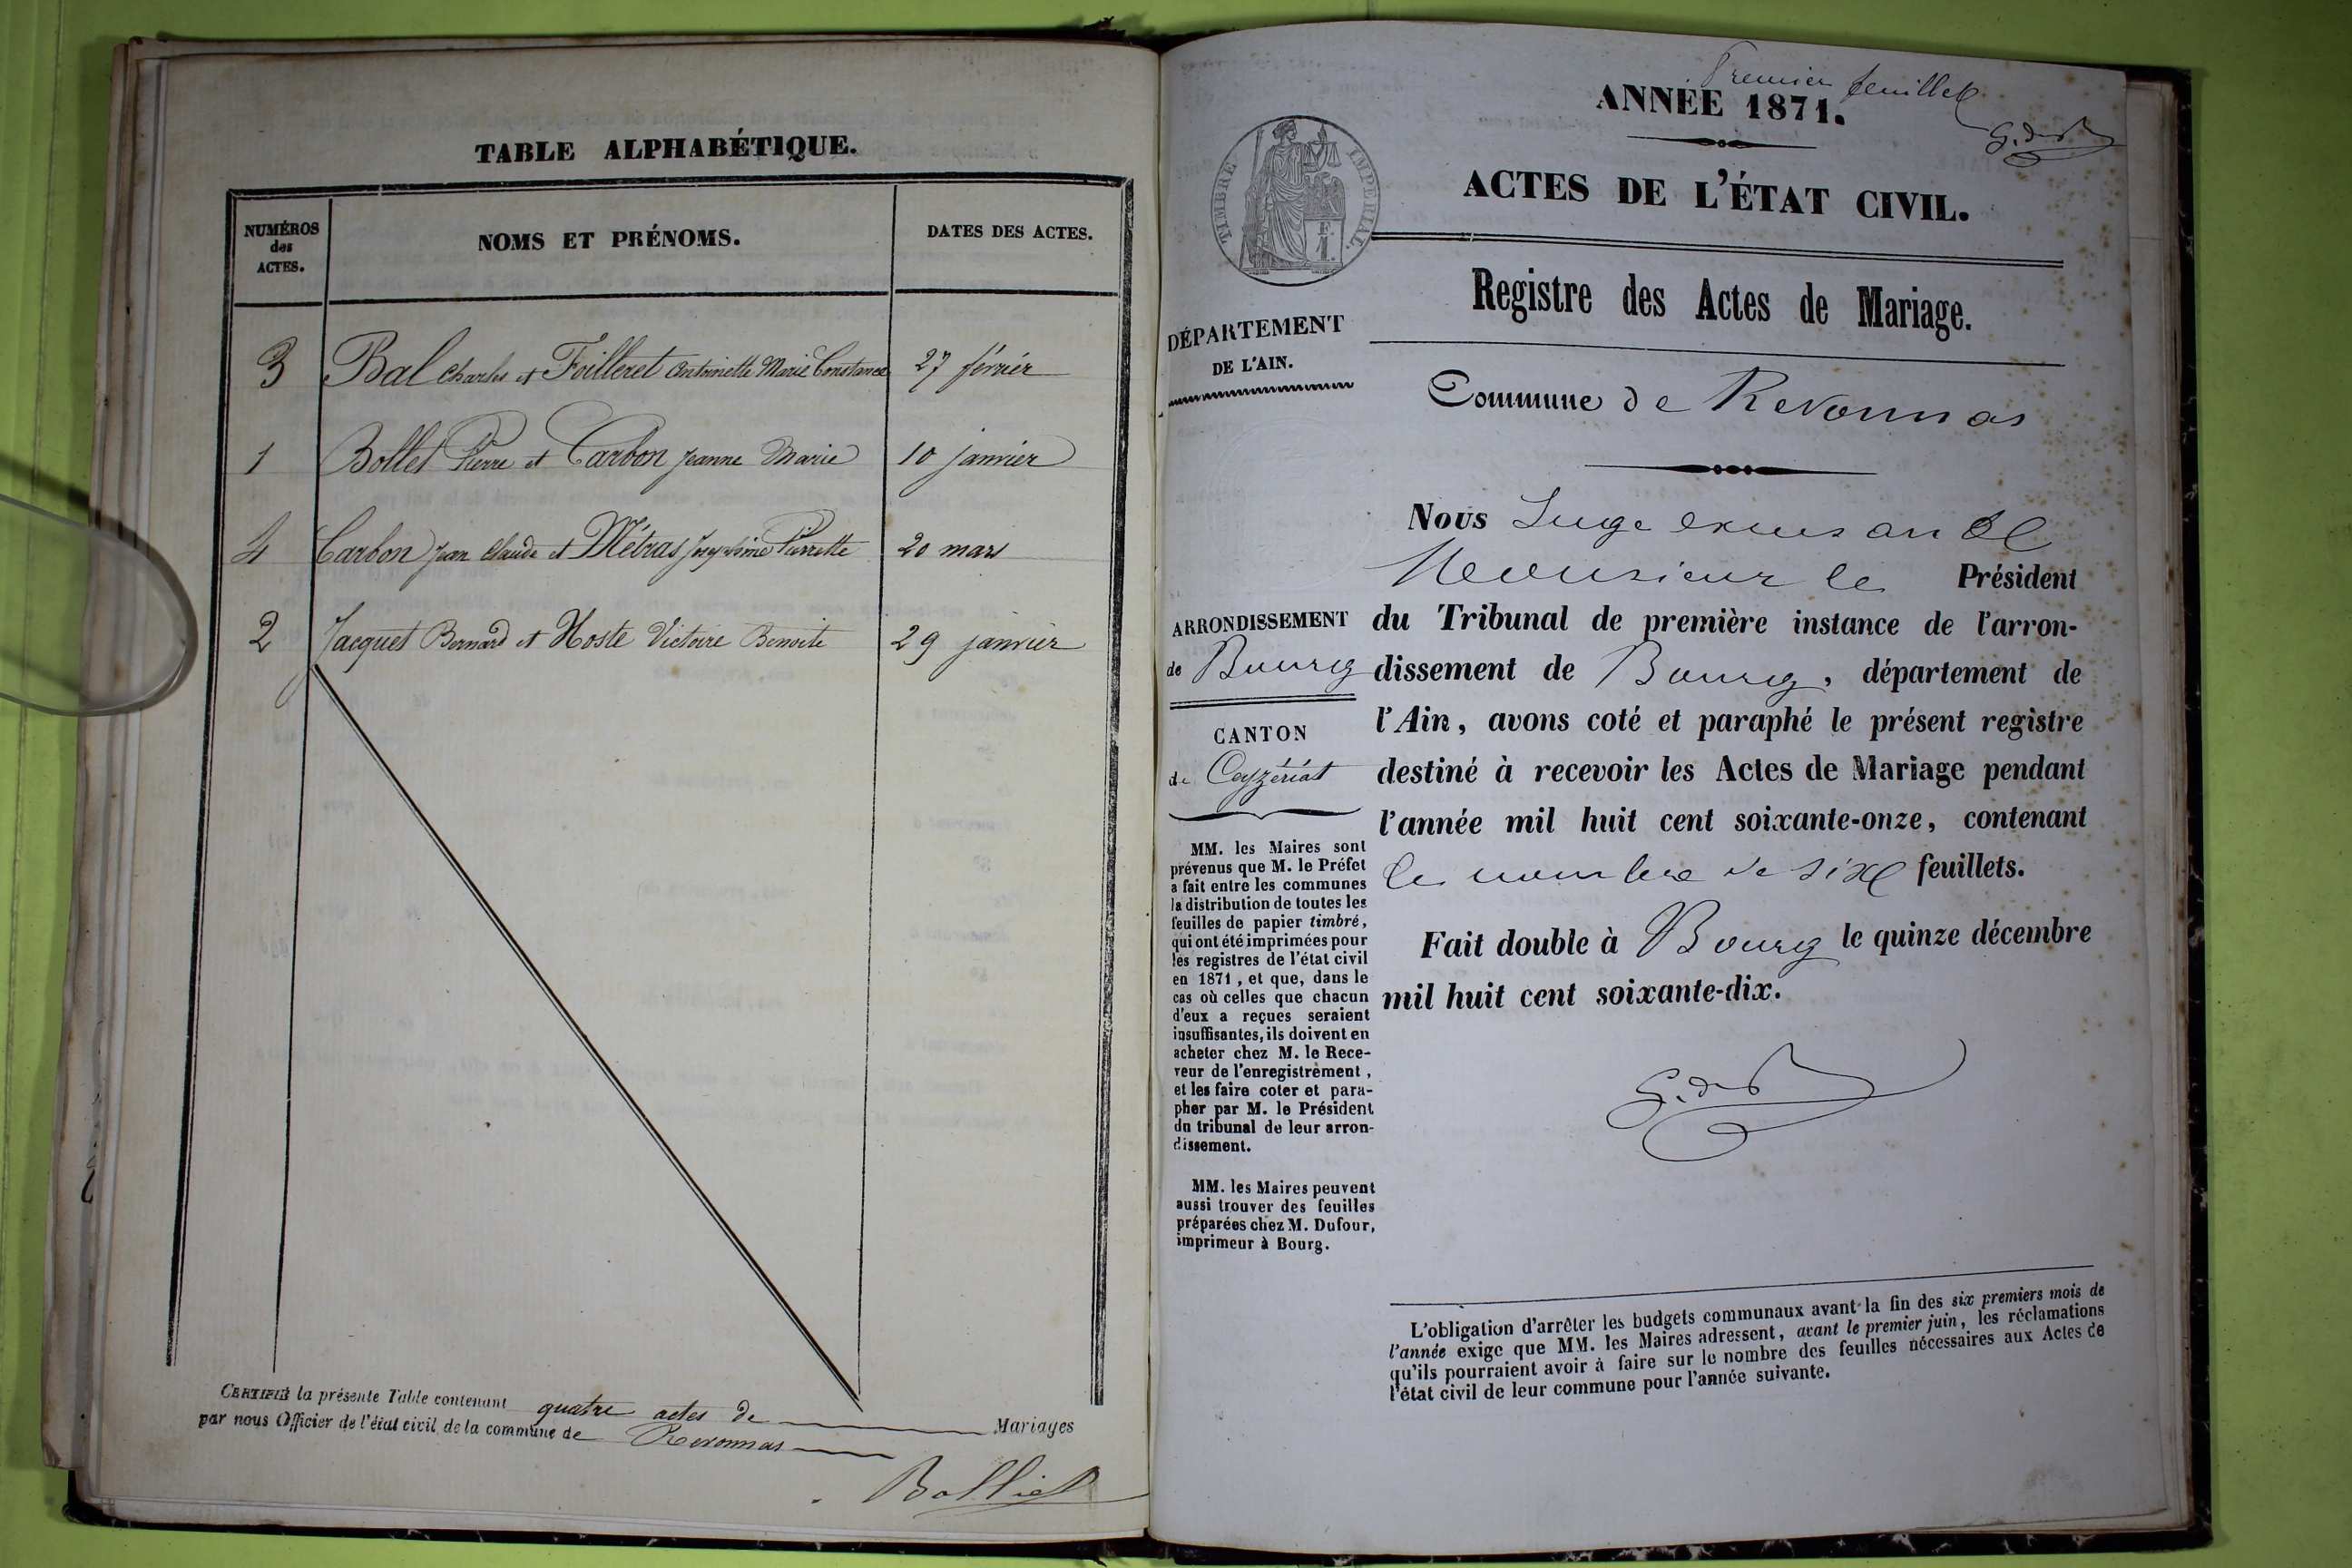 TABLE ALPHABÉTIQUE.
NUMÉROS
des
ACTES.
NOMS ET PRÉNOMS.
DATES DES ACTES.
3 Bal Charles et Foilleret Antoinette Marie Constance 27 février
1 Bollet Pierre et Carbon Jeanne Marie 10 janvier
4 Carbon Jean Claude et Métras Josephine Pierrette 20 mars
2 Jacquet Bernard et Hoste Victoire Benoite 29 janvier
CERTIFIÉ la présente Table contenant quatre actes de Mariages
par nous Officier de l'état civil de la commune de Revonnas
Premier feuillet
ANNÉE 1871.
TIMBRE IMPÉRIAL.
F.
1.
ACTES DE L'ÉTAT CIVIL.
Registre des Actes de Mariage.
DÉPARTEMENT
DE L'AIN.
Commune de Revonnas
ARRONDISSEMENT
de Bourg
CANTON
de Ceyzériat
MM. les Maires sont
prévenus que M. le Préfet
a fait entre les communes
la distribution de toutes les
feuilles de papier timbré,
qui ont été imprimées pour
les registres de l'état civil
en 1871, et que, dans le
cas où celles que chacun
d'eux a reçues seraient
insuffisantes, ils doivent en
acheter chez M. le Rece-
veur de l'enregistrement,
et les faire coter et para-
pher par M. le Président
du tribunal de leur arron-
dissement.
MM. les Maires peuvent
aussi trouver des feuilles
préparées chez M. Dufour,
imprimeur à Bourg.
Nous Juge
Monsieur le Président
du Tribunal de première instance de l'arron-
dissement de Bourg, département de
l'Ain, avons coté et paraphé le présent registre
destiné à recevoir les Actes de Mariage pendant
l'année mil huit cent soixante-onze, contenant
le nombre de six feuillets.
Fait double à Bourg le quinze décembre
mil huit cent soixante-dix.
L'obligation d'arrêter les budgets communaux avant la fin des six premiers mois de
l'année exige que MM. les Maires adressent, avant le premier juin, les réclamations
qu'ils pourraient avoir à faire sur le nombre des feuilles nécessaires aux Actes de
l'état civil de leur commune pour l'année suivante.